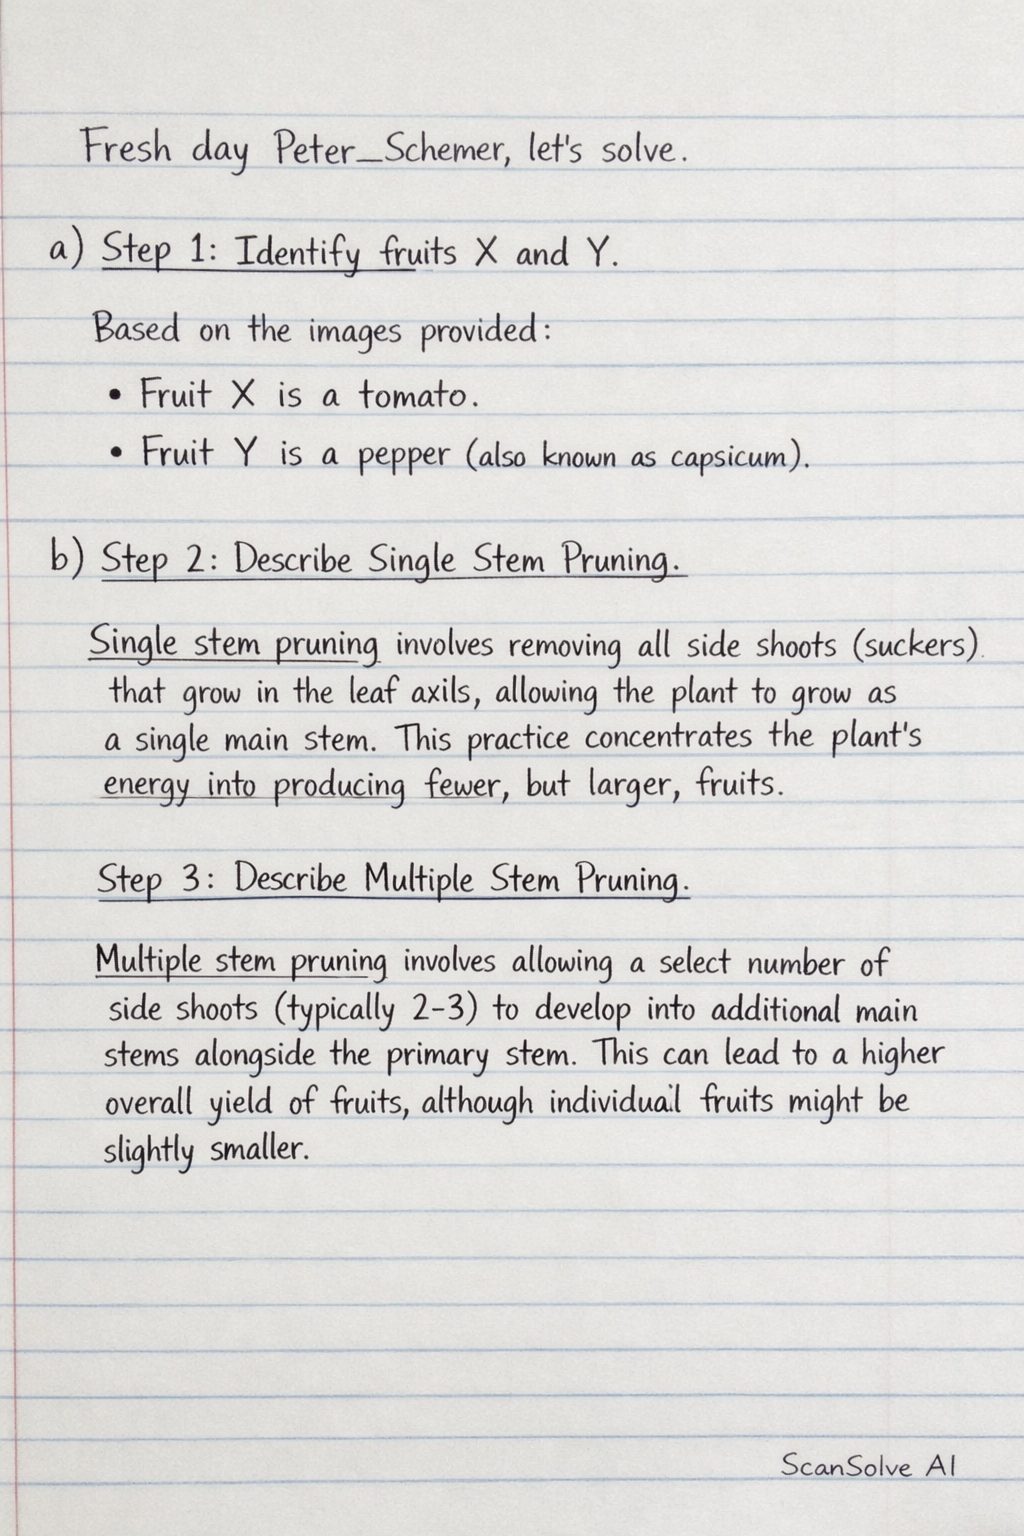 Fresh day Peter_Schemer, let's solve.
a) Step 1: Identify fruits X and Y.
Based on the images provided:
• Fruit X is a tomato.
• Fruit Y is a pepper (also known as capsicum).
b) Step 2: Describe Single Stem Pruning.
Single stem pruning involves removing all side shoots (suckers)
that grow in the leaf axils, allowing the plant to grow as
a single main stem. This practice concentrates the plant's
energy into producing fewer, but larger, fruits.
Step 3: Describe Multiple Stem Pruning.
Multiple stem pruning involves allowing a select number of
side shoots (typically 2-3) to develop into additional main
stems alongside the primary stem. This can lead to a higher
overall yield of fruits, although individual fruits might be
slightly smaller.
ScanSolve AI